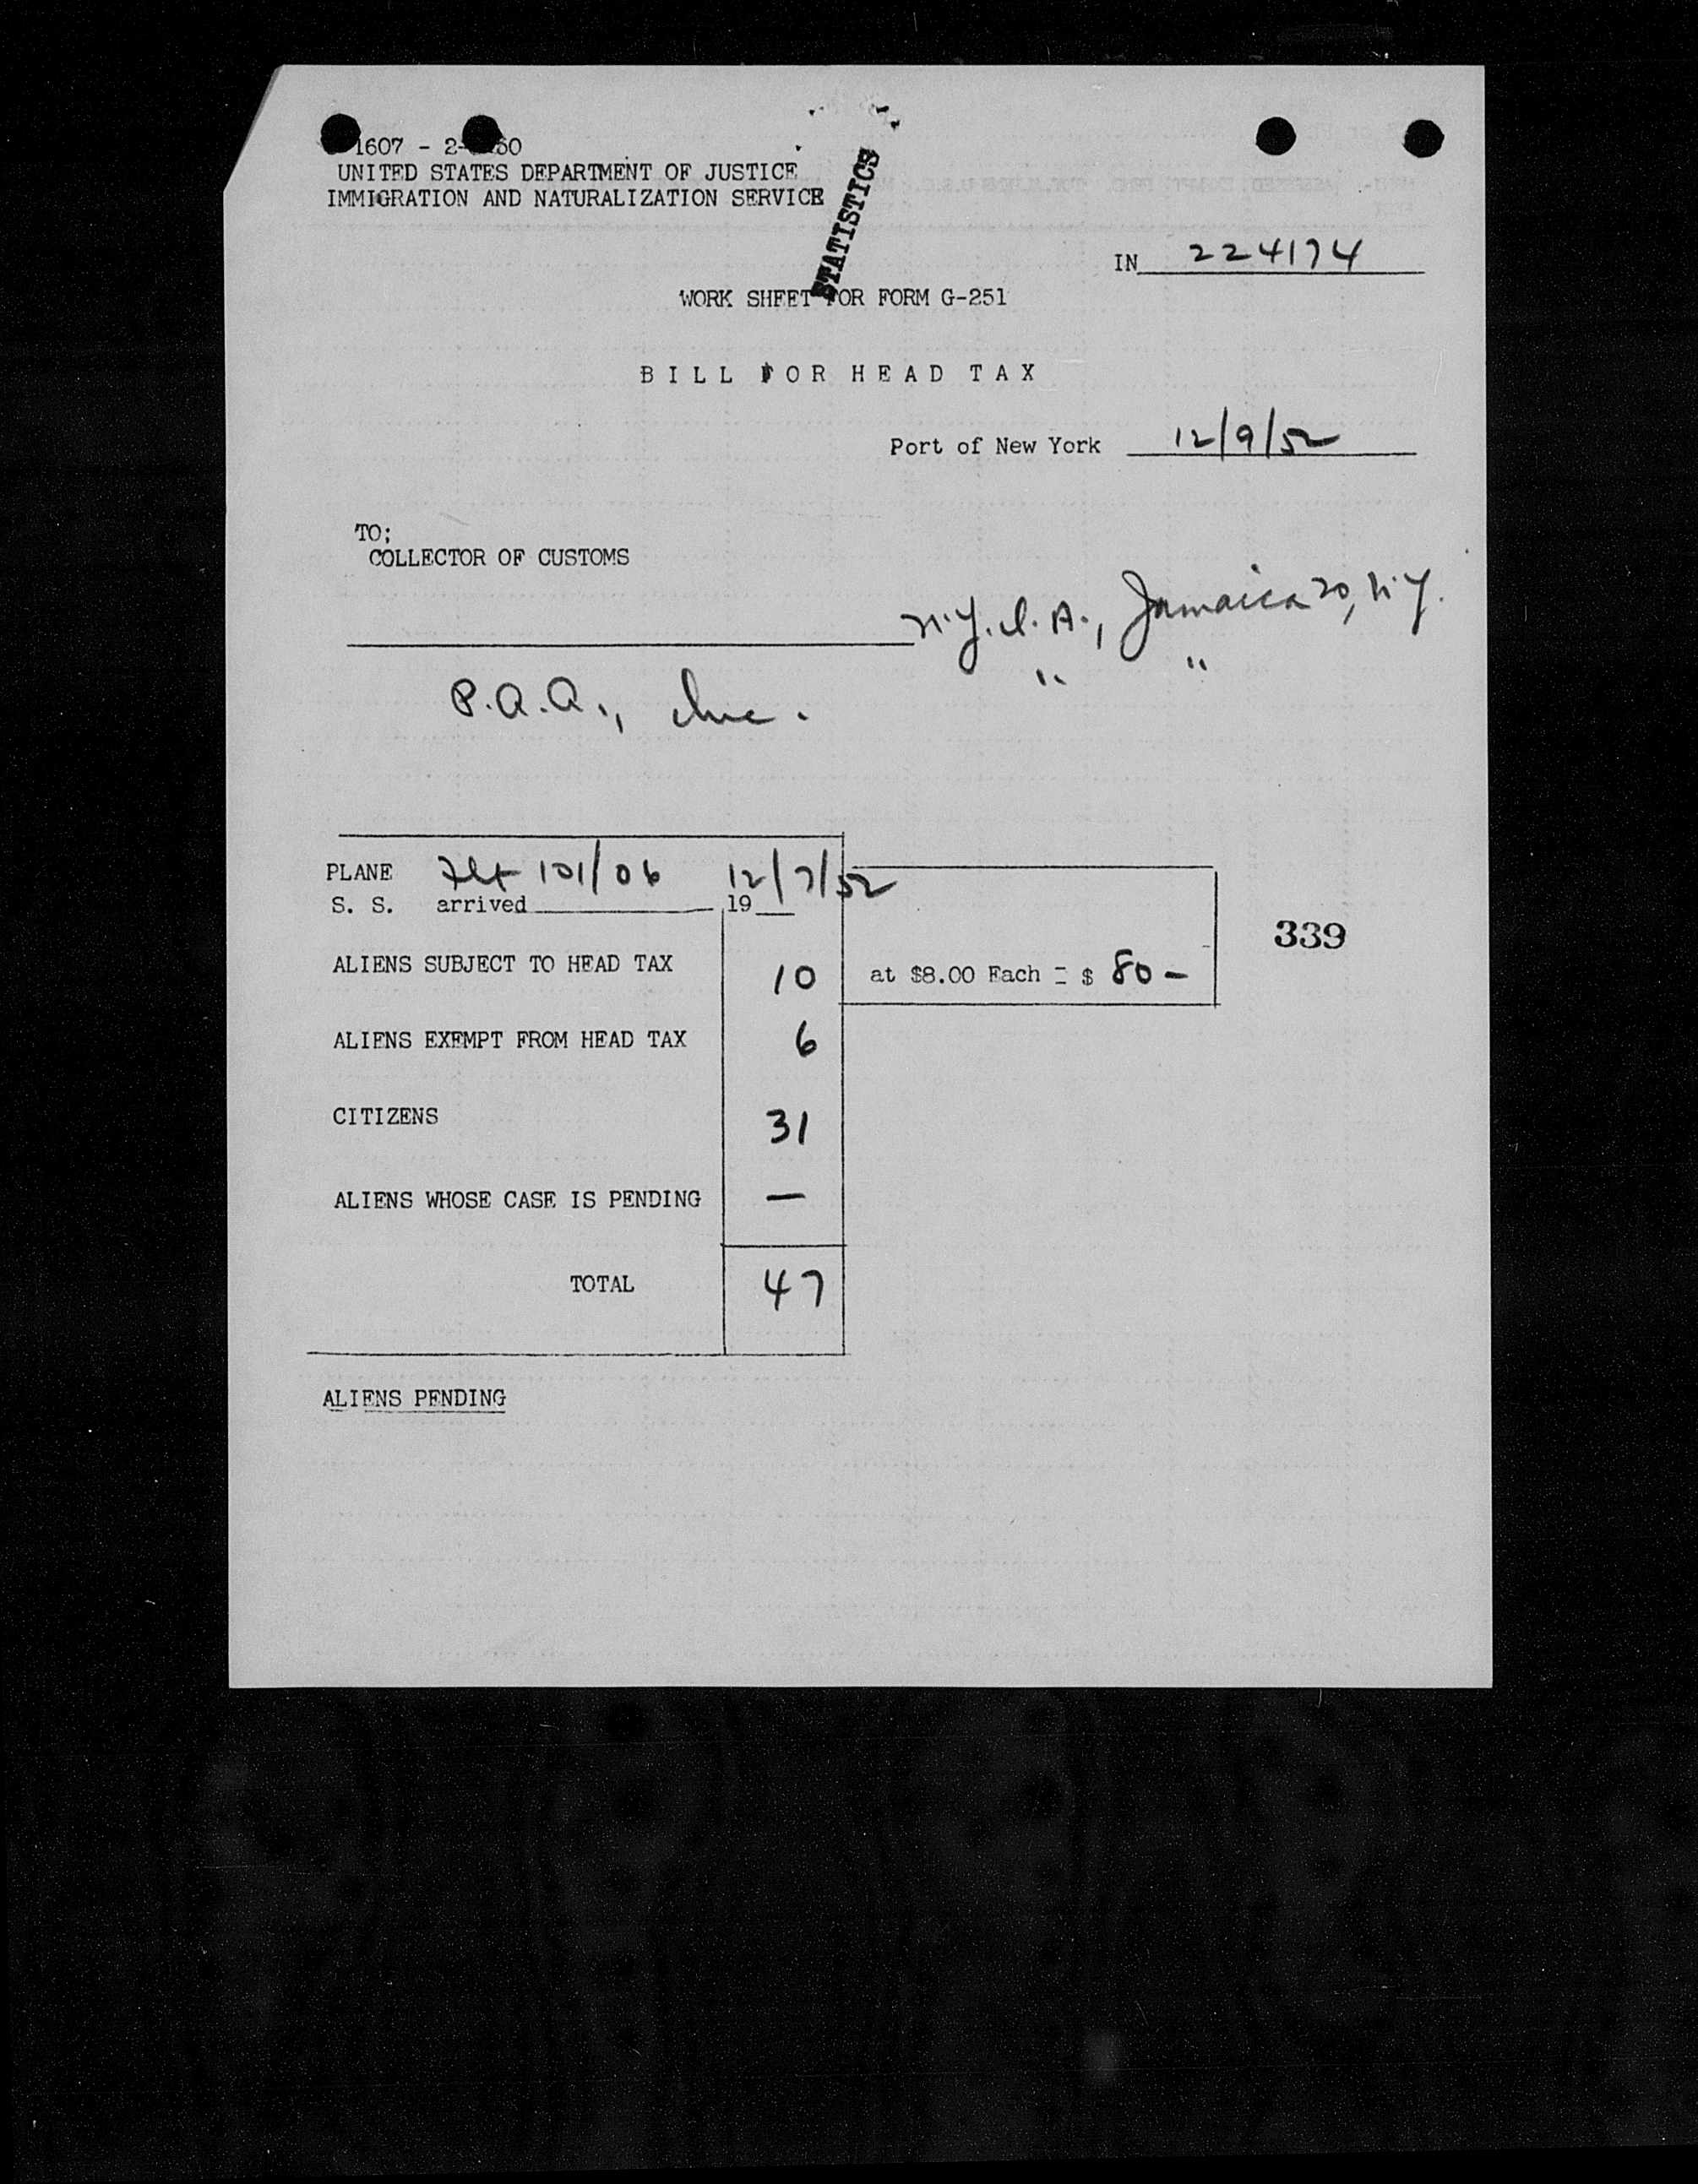 1607 - 2-
UNITED STATES DEPARTMENT OF JUSTICE
IMMIGRATION AND NATURALIZATION SERVICE
STATISTICS
IN 224174
WORK SHEET FOR FORM G-251
BILL FOR HEAD TAX
Port of New York 12/9/52
TO;
COLLECTOR OF CUSTOMS
N.Y.I.A., Jamaica 20, N.Y.
P.A.A., Inc. " "
PLANE Flt 101/06 12/7/52
S. S. arrived 19
ALIENS SUBJECT TO HEAD TAX 10 at $8.00 Each = $ 80 -
339
ALIENS EXEMPT FROM HEAD TAX 6
CITIZENS 31
ALIENS WHOSE CASE IS PENDING —
TOTAL 47
ALIENS PENDING